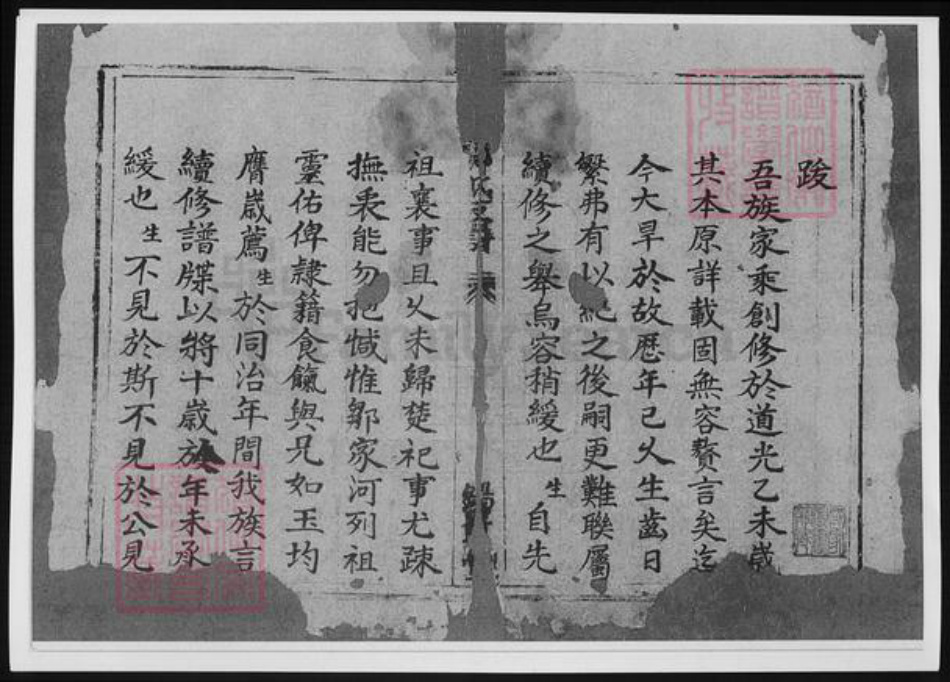 跋
吾族家乘創修於道光乙未歲
其本原詳載固無容贅言矣迄
今大旱於故歷年已久生齒日
繁弗有以紀之後嗣更難聯屬
續修之舉烏容稍緩也生自先
祖襄事且久未歸楚祀事尤疎
撫衷能勿抱慽惟鄒家河列祖
靈佑俾隸籍食餼與兄如玉均
膺歲薦生於同治年間我族言
續修譜牒以將十歲放年未承
緩也生不見於斯不見於公見